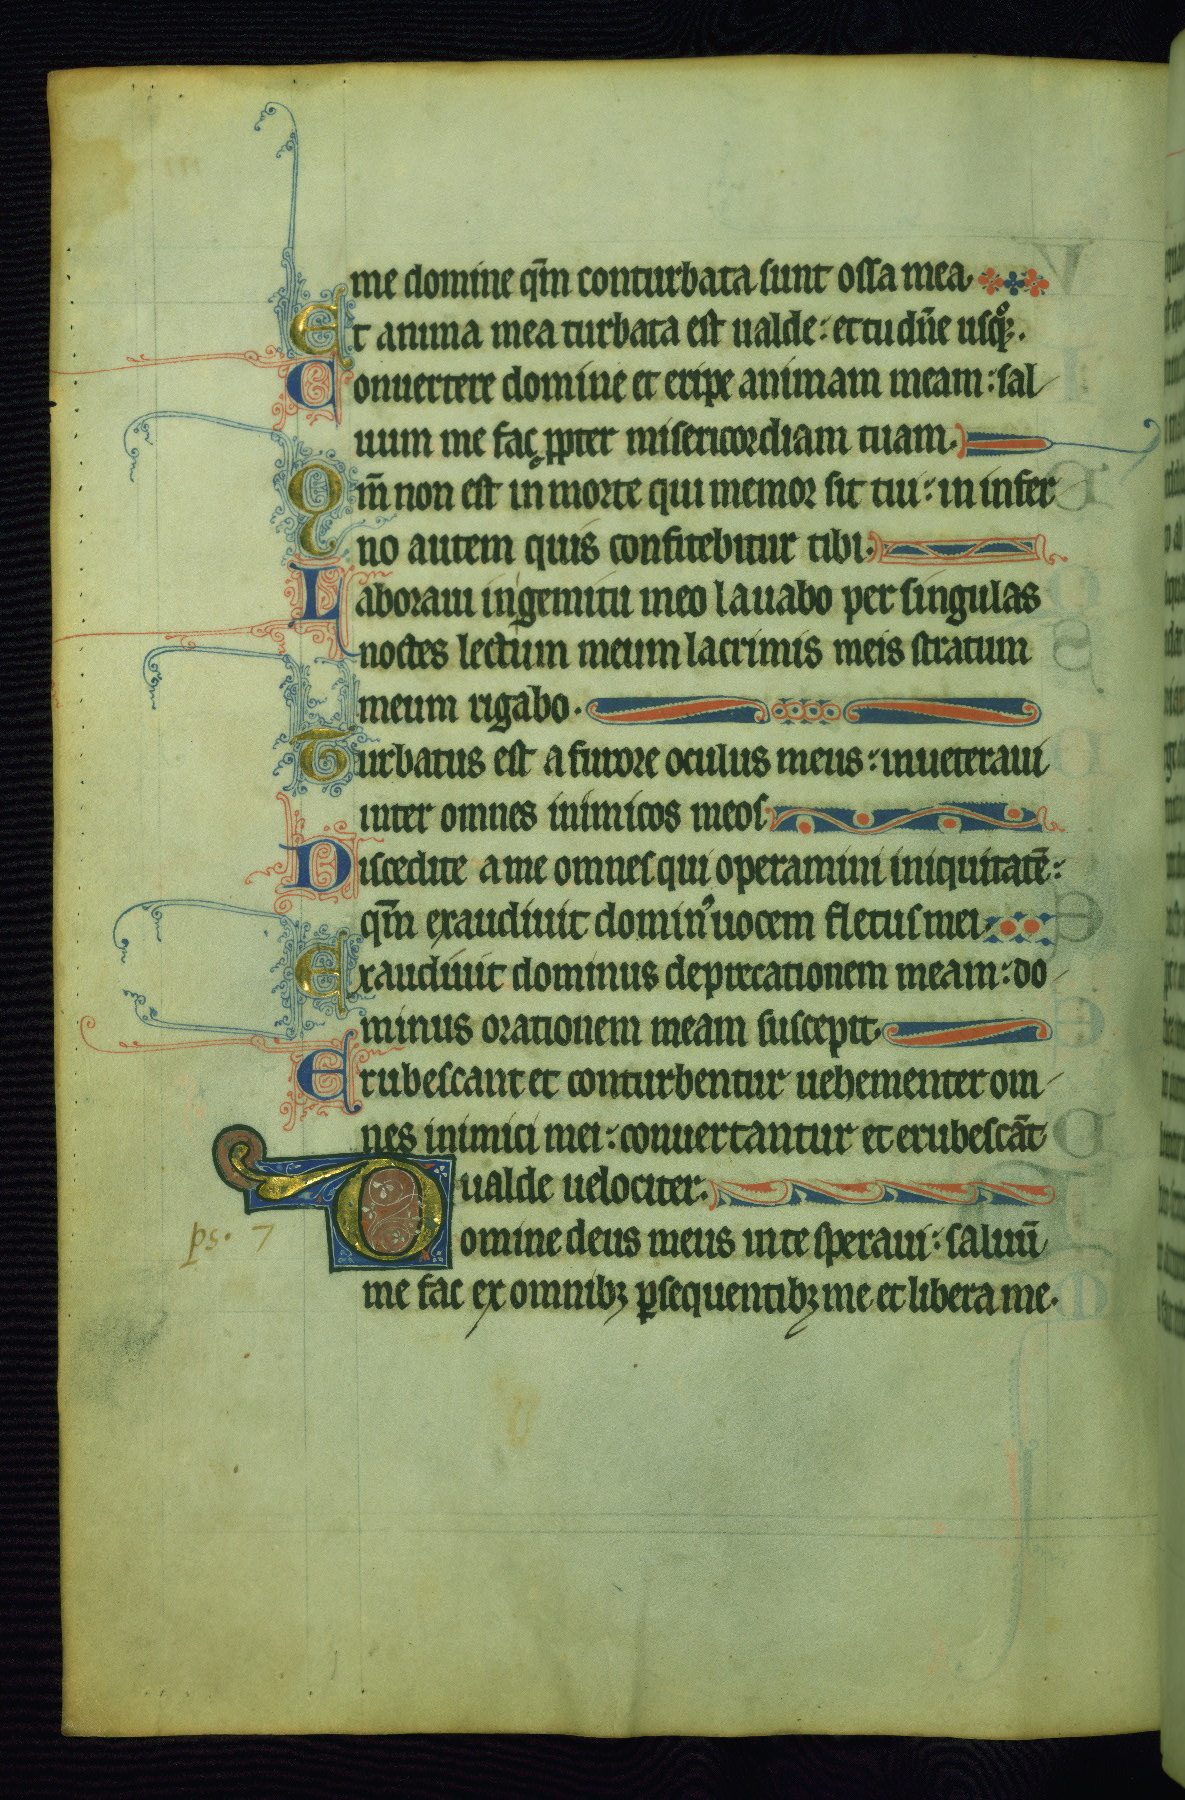 me domine qm̄ conturbata sunt ossa mea.
Et anima mea turbata est ualde: et tu dn̄e usqꝫ.
Conuertere domine et eripe animam meam: sal
uum me fac ꝓpter misericordiam tuam.
Qm̄ non est in morte qui memor sit tui: in infer
no autem quis confitebitur tibi.
Laboraui in gemitu meo lauabo per singulas
noctes lectum meum lacrimis meis stratum
meum rigabo.
Turbatus est a furore oculus meus: inueteraui
inter omnes inimicos meos
Discedite a me omnes qui operamini iniquitatē:
qm̄ exaudiuit dominꝰ uocem fletus mei.
Exaudiuit dominus deprecationem meam: do
minus orationem meam suscepit.
Erubescant et conturbentur uehementer om
nes inimici mei: conuertantur et erubescāt
ualde uelociter.
ps. 7
Domine deus meus in te speraui: saluū
me fac ex omnibꝫ ꝑsequentibꝫ me et libera me.